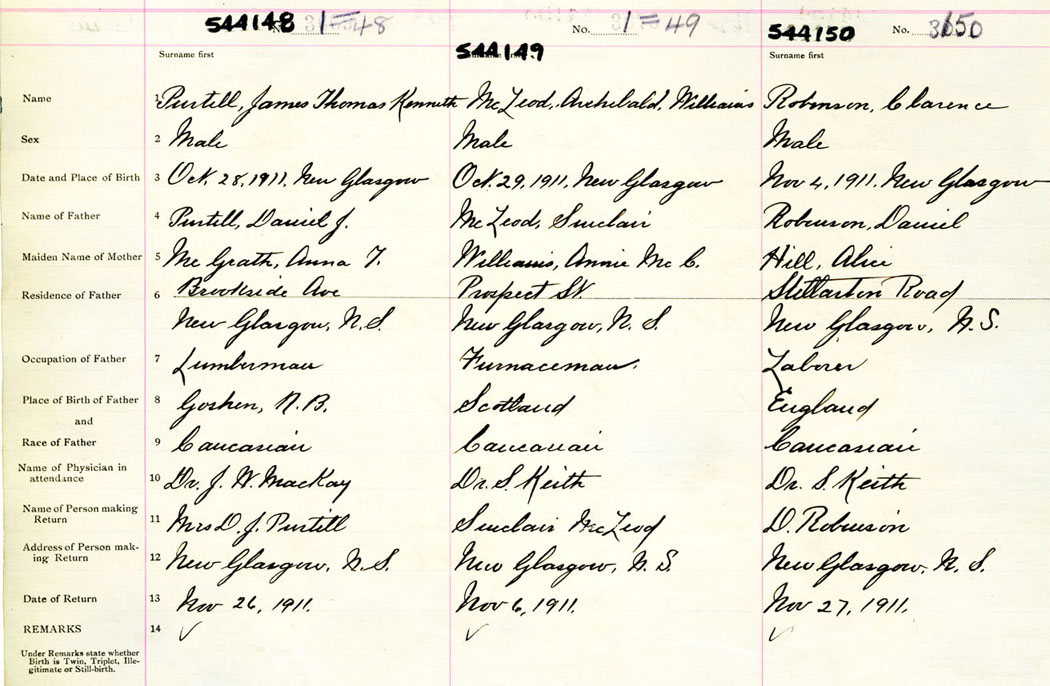 544148 1=48
No. 1=49
544150 No. 3150
Surname first
544149
Surname first
Surname first
Name 1 Purtill, James Thomas Kenneth McLeod, Archibald, Williams Robinson, Clarence
Sex 2 Male Male Male
Date and Place of Birth 3 Oct. 28, 1911, New Glasgow Oct. 29, 1911, New Glasgow Nov 4, 1911, New Glasgow
Name of Father 4 Purtill, Daniel J. McLeod, Sinclair Robinson, Daniel
Maiden Name of Mother 5 McGrath, Anna T. Williams, Annie McC. Hill, Alice
Residence of Father 6 Brookside Ave Prospect St. Stellarton Road
New Glasgow, N.S. New Glasgow, N.S. New Glasgow, N.S.
Occupation of Father 7 Lumberman Furnaceman. Laborer
Place of Birth of Father 8 Goshen, N.B. Scotland England
and
Race of Father 9 Caucasian Caucasian Caucasian
Name of Physician in
attendance 10 Dr. J. W. MacKay Dr. S. Keith Dr. S. Keith
Name of Person making
Return 11 Mrs D. J. Purtill Sinclair McLeod D. Robinson
Address of Person mak-
ing Return 12 New Glasgow, N.S. New Glasgow, N.S. New Glasgow, N.S.
Date of Return 13 Nov 26, 1911. Nov 6, 1911. Nov 27, 1911.
REMARKS 14 ✓ ✓ ✓
Under Remarks state whether
Birth is Twin, Triplet, Ille-
gitimate or Still-birth.